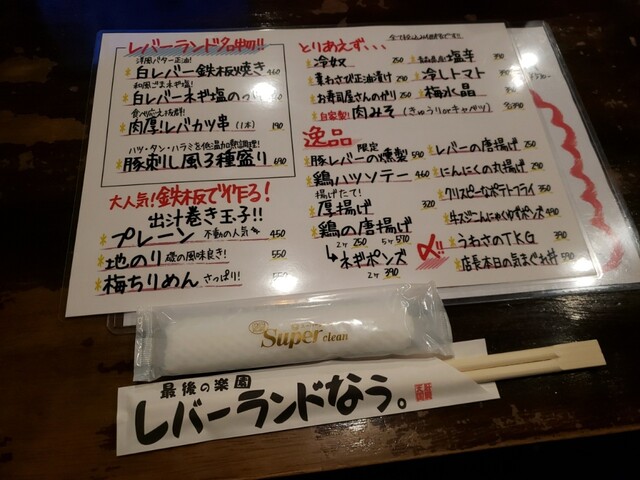 レバーランド名物!!
洋風バター正油!
白レバー鉄板焼き 460
和風ごま本塩!
白レバーネギ塩のっけ
食べ応え抜群!
肉厚!レバカツ串(1本) 190
ハツ・タン・ハラミを低温加熱調理!
豚刺し風3種盛り 690
大人気!鉄板で作る!
出汁巻き玉子!!
プレーン 不動の人気 450
地のり 磯の風味良き! 550
梅ちりめん さっぱり! 550
とりあえず、、、
冷奴 250
塩辛 390
葉わさび正油漬け 290
冷しトマト 390
お寿司屋さんのガリ 290
梅水晶 390
自家製!肉みそ(きゅうりorキャベツ) 各390
逸品
限定
豚レバーの燻製 590
鶏ハツソテー 460
揚げたて!
厚揚げ 320
鶏の唐揚げ
2ヶ 250 5ヶ 590
ネギポンズ
2ヶ 390
レバーの唐揚げ 290
にんにくの丸揚げ 290
クリスピーなポテトフライ 390
牛スジこんにゃくねぎポンズ 490
〆!!
うわさのTKG 390
店長本日の気まぐれ丼 590
Super clean
最後の楽園
レバーランドなう。